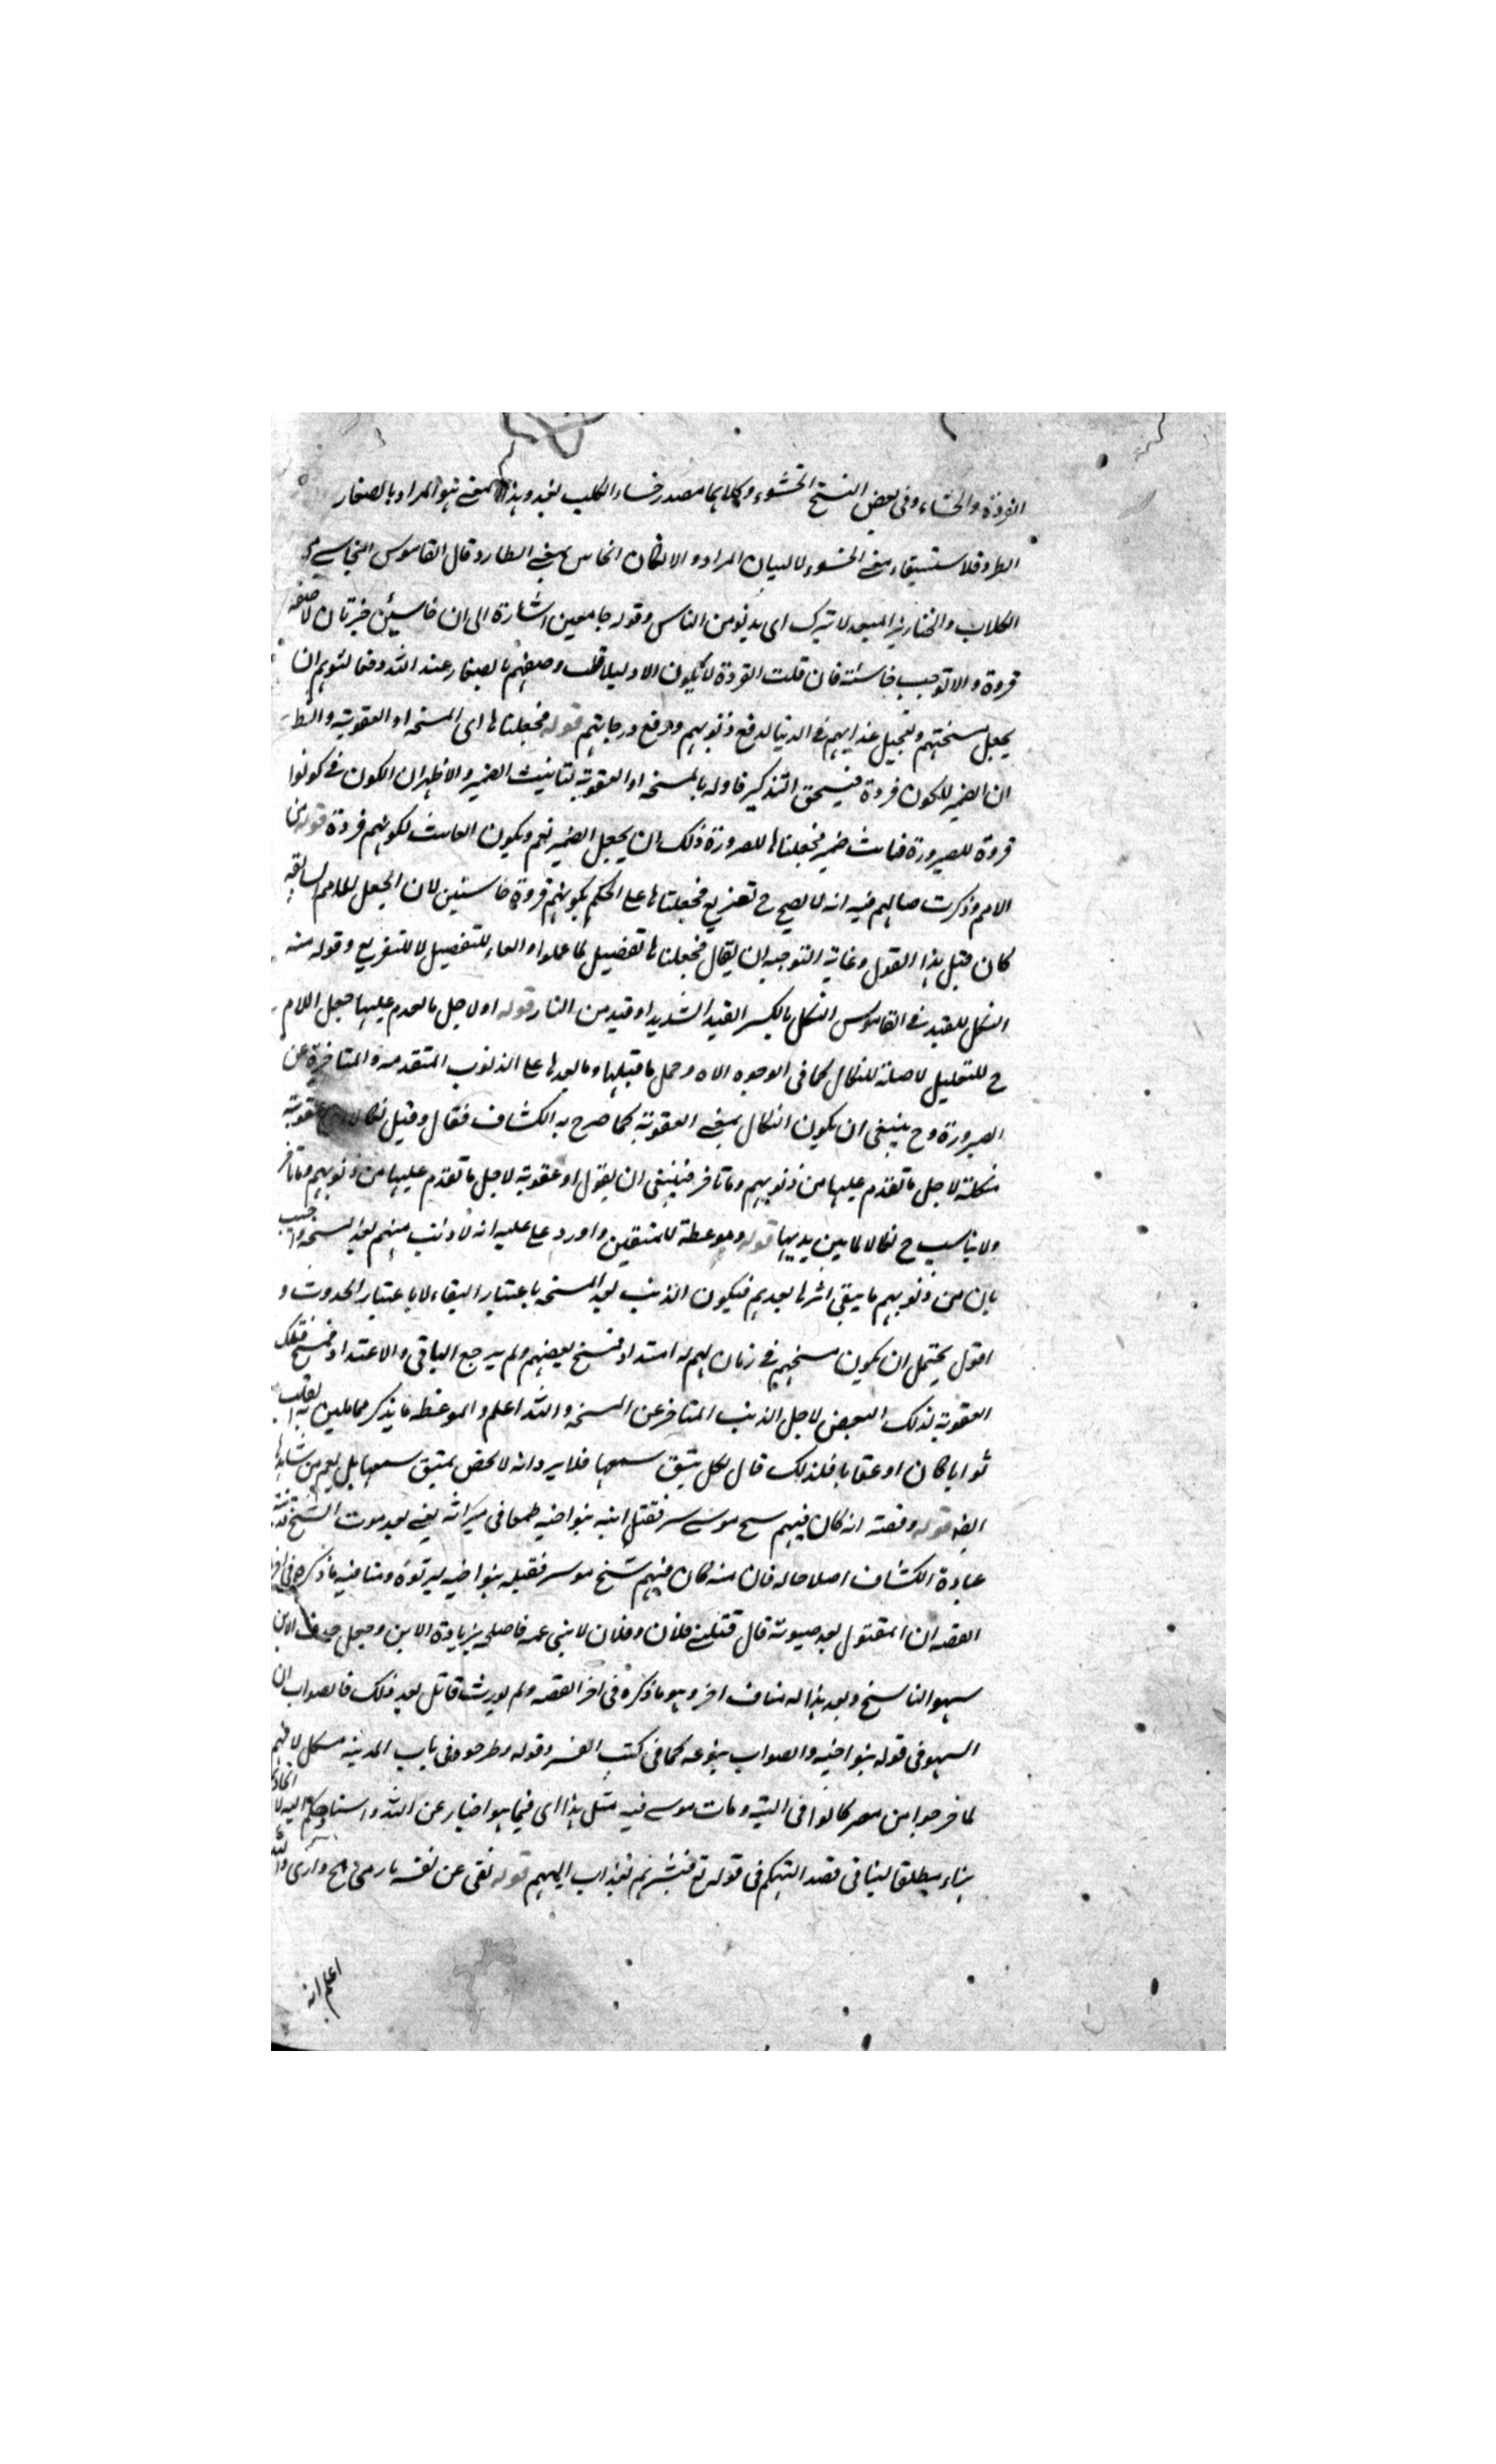 القردة والخساء وفي بعض النسخ الخسوء وكلاهما مصدر خساء الكلب بعد وبهذا المعنى هو المراد بالصغار
الطرد فلاستيفاء معنى الخسوء لا لبيان المراد والا لكان الخاسى بمعنى الطارد قال القاموس الخاسئ من
الكلاب والخنازير المبعد لا يترك اى يدنو من الناس وقوله جامعين اشارة الى ان خاسئين خبر ثان لا صفة
قردة والا لوجب خاسئة فان قلت القردة لا يكون الا ذليلا قلت وصفهم بالصغار عند الله دفعا لتوهم ان
يجعل مسختهم وتعجيل عذابهم في الدنيا لدفع ذنوبهم ورفع درجاتهم قوله فجعلناها اى المسخة او العقوبة
ان الضمير للكون قردة فيستحق التذكير فاوله بالمسخة او العقوبة لتانيث الضمير والاظهر ان الكون في كونوا
قردة للصيرورة فتانيث ضمير فجعلناها للصيرورة ذلك ان يجعل الضمير لهم ويكون التانيث لكونهم قردة قوله من
الامم وذكرت حالهم فيه انه لا يصح ح تفريع فجعلناها على الحكم بكونهم قردة خاسئين لان الجعل للامم السابقة
كان قبل هذا القول وغاية التوجيه ان يقال فجعلناها تفصيل لما عملوا والفاء للتفصيل لا للتفريع وقوله منه
النكل للقيد في القاموس النكل بالكسر القيد الشديد او قيد من النار قوله او لاجل ما تقدم عليها جعل اللام
ح للتعليل لا صلة للنكال كما في الوجوه الاول وحمل ما قبلها وما بعدها على الذنوب المتقدمة والمتاخرة عن
الصيرورة وح ينبغي ان يكون النكال بمعنى العقوبة كما صرح به الكشاف فقال وقيل نكالا عقوبة
منكلة لاجل ما تقدم عليها من ذنوبهم وما تاخر فينبغي ان يقول او عقوبة لاجل ما تقدم عليها من ذنوبهم وما تاخر
ولا يناسب ح نكالا لما بين يديها قوله وموعظة للمتقين واورد على عليه انه لا ذنب منهم بعد المسخة واجيب
بان من ذنوبهم ما يبقى اثرها بعدهم فيكون الذنب بعد المسخة باعتبار البقاء لا باعتبار الحدوث و
اقول يحتمل ان يكون مسخهم في زمان لهم له امتداد فمسخ بعضهم ولم يرجع الباقي والاعتداد فمسخ فتلك
العقوبة لذلك البعض لاجل الذنب المتاخر عن المسخة والله اعلم والموعظة ما يذكر مما يلين القلب
ثوابا كان او عقابا فلذلك قال لكل متق سمعها فلا يرد انه لا يخص بمتق سمعها بل يعم من شاهدها
ايضا قوله وقصته انه كان فيهم شيخ موسر فقتل ابنه بنو اخيه طمعا في ميراثه يعنى بعد موت الشيخ
عبارة الكشاف اصلا حاله فان منه كان فيهم شيخ موسر فقتله بنو اخيه ليرثوه وينافيه ما ذكره في اخر
القصة ان المقتول بعد حيوته قال قتلني فلان وفلان لابني عمه فاصلحه بزيادة الابن وجعل حذف الابن
سهو الناسخ وبعد هذا له مناف اخر وهو ما ذكره في اخر القصة ولم يورث قاتل بعد ذلك فالصواب ان
السهو في قوله بنو اخيه والصواب بنو عمه كما في كتب التفسير وقوله وطرحوه في باب المدينة مشكل لانهم
لما خرجوا من مصر كانوا في التيه ومات موسى فيه مثل هذا اى فيما هو اخبار عن الله واسناد
بناء مطلقا لينافي قصد التهكم في قوله تع فبشرهم بعذاب اليم قوله نفى عن نفسه ما رمى به
اعلم انه